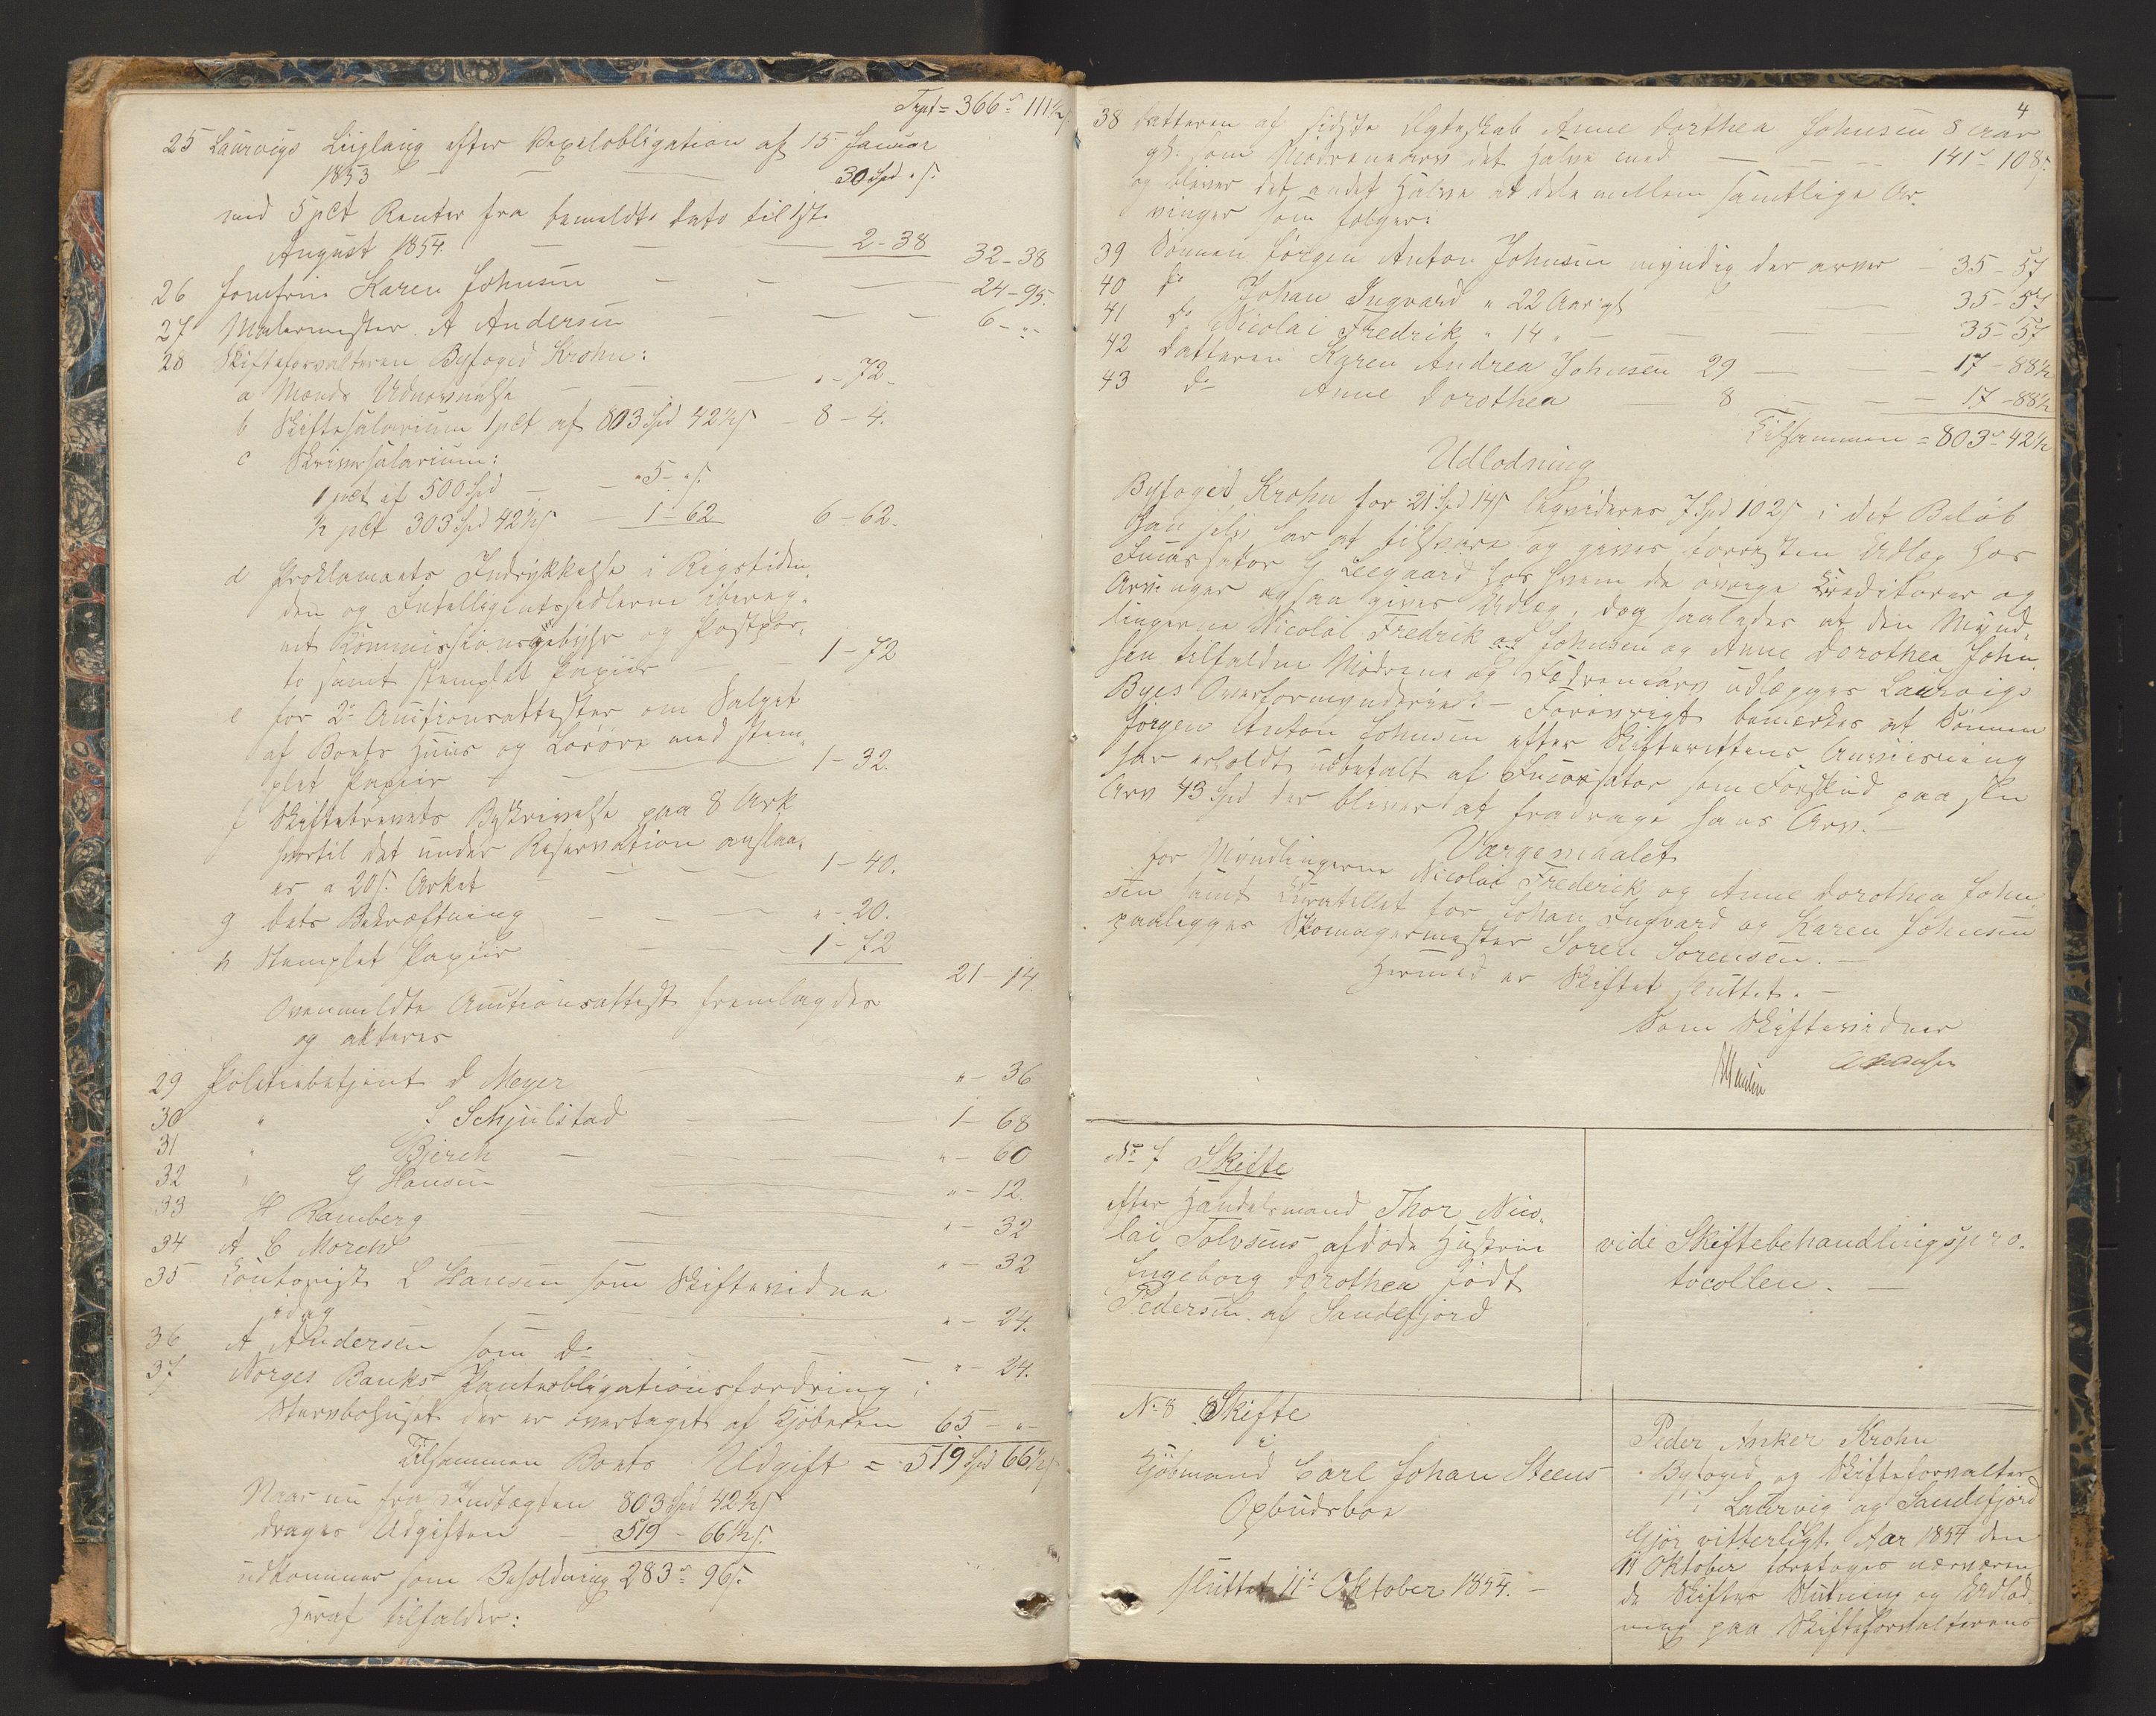 Trpt = 366 - 111½
25 Laurvigs Liiglaug efter Vexelobligation af 15 Januar
1853 — — — 30 Spd " s.
med 5 pCt Renter fra bemeldte Dato til 1ste
August 1854. — — — 2-38 32-38
26 Jomfrue Karen Johnsen — — — 24-95.
27 Malermester A Andersen — — — 6- "-
28 Skifteforvalteren Byfoged Krohn:
a Mænds Udnævnelse — — — "-72-
b Skiftesalarium 1 pCt af 803 Spd 42½ s — 8-4.
c Skriversalarium:
1 pCt af 500 Spd — — "5- " s.
½ pCt 303 Spd 42½ s — 1-62 6-62.
d Proklamaets Indrykkelse i Rigstiden-
den og Intelligentssedlerne ibereg-
net Kommissionsgebyhr og Postpor-
to samt stemplet Papiir — — 1-72
e for 2de Auctionsattester om Salget
af Boets Huus og Løsøre med stem-
plet Papiir — — — 1-32.
f Skiftebrevets Beskrivelse paa 8 Ark
hvortil det under Reservation anslaa-
es a 20 s. Arket — — — 1-40.
g dets Bekræftning — — — "-20.
h Stemplet Papiir — — 1-72
21-14.
Ovenmeldte Auctionsattest fremlagdes
og akteres
29 Politiebetjent D Meyer — "-36
30 " S Schjulstad — 1-68
31 " Bjerch — "-60
32 " G Hansen — "-12.
33 H Ramberg — "-32
34 A C Morch — "-32
35 Contorist L Hansen som Skiftevidne
idag — — — "-24.
36 A Andersen som Do — — "-24.
37 Norges Banks Panteobligationsfordring i
Stervbohuset der er overtaget af Kjøberen 65- "-
Tilsammen Boets Udgift = 519 Spd 66½ s
Naar nu fra Indtægten 803 Spd 42½ s
drages Udgiften — 519 - 66½ s.
udkommer som Beholdning 283 - 96 s.
Heraf tilfalder:
4
38 Datteren af sidste Ægteskab Anne Dorthea Johnsen 8 Aar
gl. som Mødrenearv det halve med — — — 141 - 108 s.
og bliver det andet Halve at dele mellem samtlige Ar-
vinger som følger:
39 Sønnen Jørgen Anton Johnsen myndig der arver — 35-57
40 Do Johan Ingvard " 22 Aar gl — 35-57
41 Do Nicolai Fredrik " 14 " — — 35-57
42 Datteren Karen Andrea Johnsen 29 — — 17-88½
43 Do Anne Dorothea — 8 — — 17-88½
Tilsammen = 803 - 42½
Udlodning
Byfoged Krohn for 21 Spd 14 s liqvideres 7 Spd 102 s i det Beløb
han selv har at tilsvare og gives forresten Udlæg hos
Incassator G Leegaard hos hvem de øvrige Kreditorer og
Arvinger ogsaa gives Udlæg, dog saaledes at den Mynd-
lingerne Nicolai Fredrik Johnsen og Anne Dorothea John-
sen tilfaldne Mødrene og Fædrenearv udlægges Laurvigs
Byes Overformynderie. — Forøvrigt bemærkes at Sønnen
Jørgen Anton Johnsen efter Skifterettens Anviisning
har erholdt udbetalt af Incassator som Forskud paa sin
Arv 43 Spd der bliver at fradrage hans Arv. —
Værgemaalet
for Myndlingerne Nicolai Frederik og Anne Dorothea John-
sen samt Curatellet for Johan Ingvard og Karen Johnsen
paalægges Skomagermester Soren Sorensen. —
Hermed er Skiftet sluttet. —
Som Skiftevidner
No 7 Skifte
efter Handelsmand Thor Nico-
lai Tolvsens afdøde Hustrue
Ingeborg Dorothea født
Pedersen af Sandefjord
vide Skiftebehandlingspro-
tocollen. —
No 8 Skifte
i
Kjøbmand Carl Johan Steens
Opbudsboe
sluttet 11te Oktober 1854. —
Peder Anker Krohn
Byfoged og Skifteforvalter
i Laurvig og Sandefjord
Gjør vitterligt: Aar 1854 den
11 Oktober foretoges nærværen-
de Skiftes Slutning og Udlod-
ning paa Skifteforvalterens